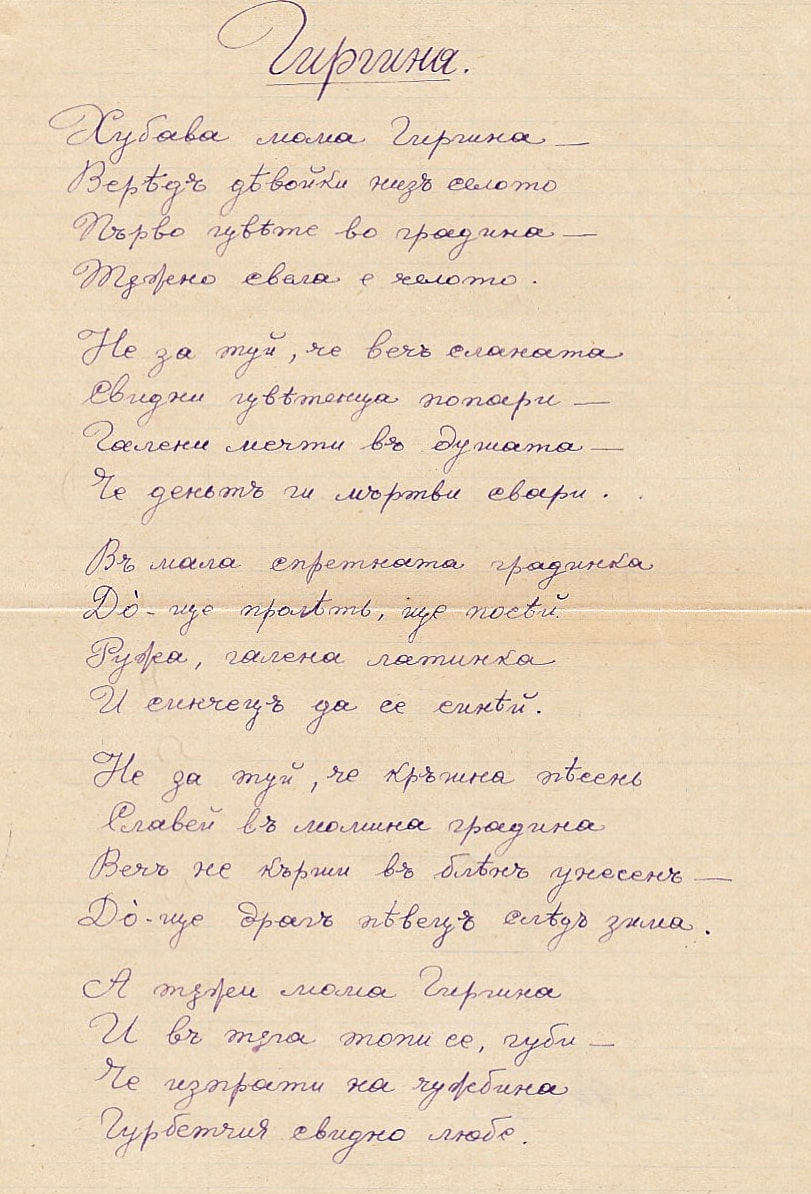 Гиргина.
Хубава мома Гиргина —
Верѣдъ дѣвойки низъ селото
Първо цвѣте во градина —
Тѫжно свела е челото.
Не за туй, че вечъ сланата
Свидни цвѣтенца попари —
Галени мечти въ душата —
Че деньтъ ги мъртви свари.
Въ мала спретната градинка
До̀-ще пролѣть, ще посѣй
Ружа, галена латинка
И синчецъ да се синѣй.
Не за туй, че кръшна пѣсень
Славей въ момина градина
Вечъ не кърши въ блѣнъ унесенъ —
До̀-ще драгъ пѣвецъ слѣдъ зима.
А тѫжи мома Гиргина
И въ тѫга топи се, губи —
Че изпрати на чужбина
Гурбетчия свидно любе.